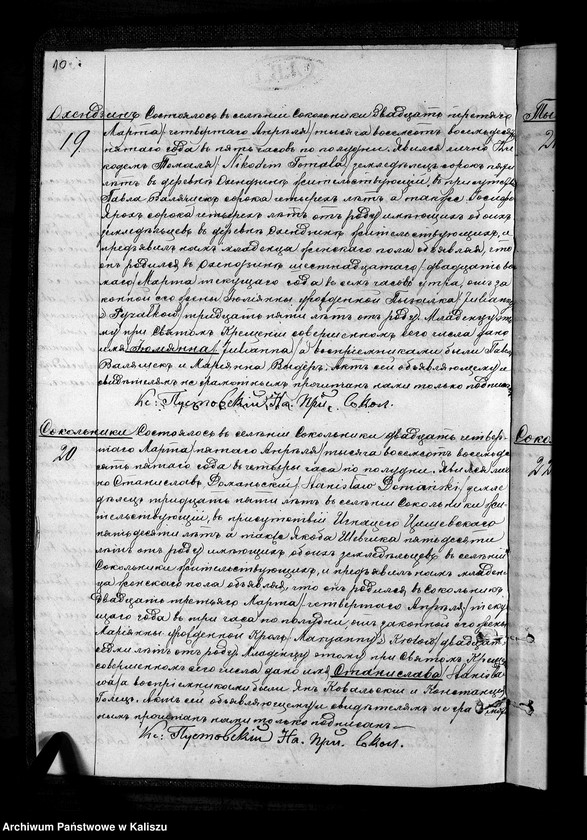 10.
Охендзинъ Состоялось въ селеніи Сокольники двадцать третяго
19 Марта/четвертаго Апрѣля/тысяча восемсотъ восемьдесятъ
пятаго года въ пять часовъ по полудни. Явился лично Ни-
кодемъ Томала/Nikodem Tomala/земледѣлецъ сорокъ пять
лѣтъ въ деревнѣ Охендзинъ жительствующій, въ присутствіи
Павла Валящекъ сорока четырехъ лѣтъ а также
сорока четырехъ лѣтъ отъ роду имѣющихъ обоихъ
земледѣльцевъ въ деревнѣ Охендзинъ жительствующихъ, и
предъявилъ намъ младенца женскаго пола объявляя, что
онъ родился въ Охендзинѣ шестнадцатаго/двадцать вось
маго/Марта текущаго года въ семь часовъ утра, отъ за
конной его жены Юліянны урожденной /Julianna
z тридцать пяти лѣтъ отъ роду. Младенцу это
му при Святомъ Крещеніи совершенномъ сего числа дано
имя Юліянна/Julianna/а воспріемниками были Павелъ
Валящекъ и Маріянна Актъ сей объявляющему и
свидѣтелямъ не грамотнымъ прочитанъ нами только подписанъ
Кс: Пустовскій На. Прих. Сокол.
Сокольники Состоялось въ селеніи Сокольники двадцать четвер-
20 таго Марта/пятаго Апрѣля/тысяча восемсотъ восемьде
сятъ пятаго года въ четыри часа по полудни. Явился лич
но Станиславъ Доманьскій/Stanisław Domański/земле
дѣлецъ тридцать пяти лѣтъ въ селеніи Сокольники жи
тельствующій, въ присутствіи Игнацего Цишевскаго
пятьдесяти лѣтъ а также Якоба Шевчика пятьдесяти
лѣтъ отъ роду имѣющихъ обоихъ земледѣльцовъ въ селеніи
Сокольники жительствующихъ, и предъявилъ намъ младен
ца женскаго пола объявляя, что онъ родился въ Сокольникахъ
двадцать третьяго Марта/четвертаго Апрѣля/теку
щаго года въ три часа по полудни, отъ законной его жены
Маріянны урожденной Кроль/Maryanny z Królów/двадцать
семи лѣтъ отъ роду. Младенцу этому при Святомъ Крещеніи
совершенномъ сего числа дано имя Станислава/Stanisła
wa/а воспріемниками были Янъ Ковальскій и Констанція
Голецъ. Актъ сей объявляющему и свидѣтелямъ не грамот
нымъ прочитанъ нами только подписанъ
Кс: Пустовскій На. Прих. Сокол.
Сокол
22
Archiwum Państwowe w Kaliszu